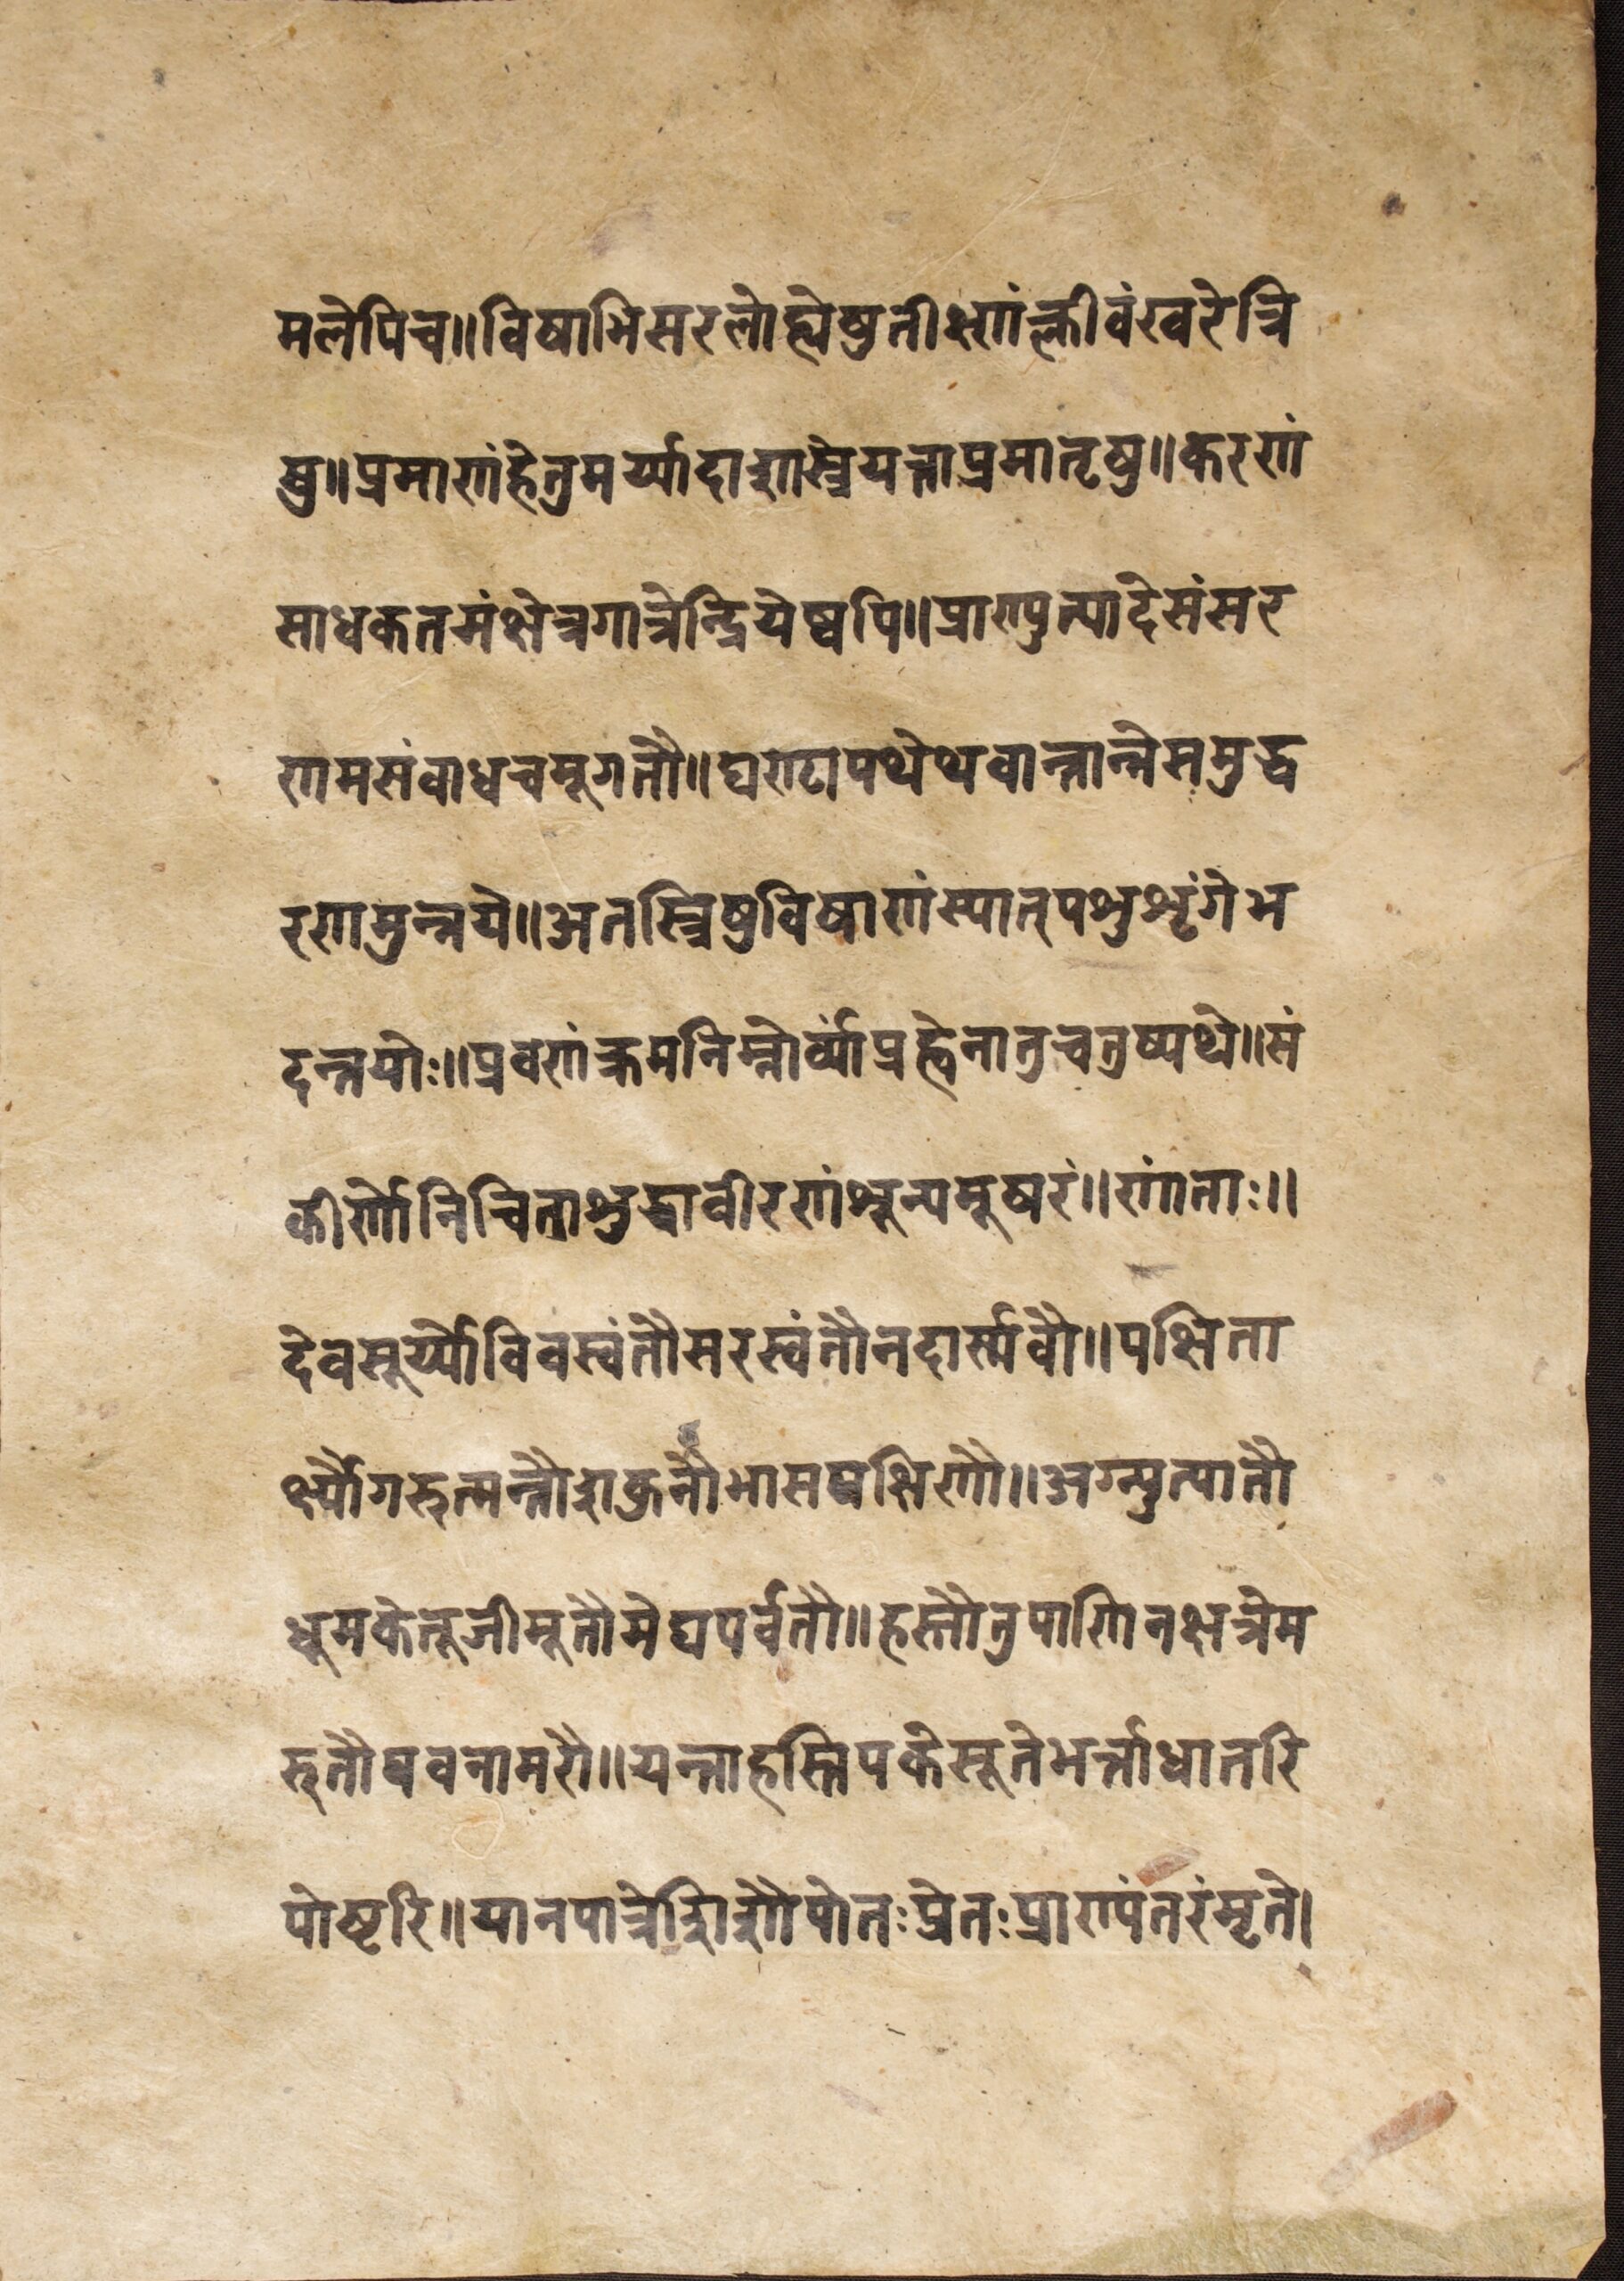 मलेपिच॥विषाभिसरलोहेषुतीक्ष्णंक्लीवंखरेत्रि
षु॥प्रमाणंहेतुमर्य्यादाशास्त्रेयत्ताप्रमातृषु॥करणं
साधकतमंक्षेत्रगात्रेन्द्रियेष्वपि॥प्राण्युत्पादेसंसर
णमसंवाधचमूगतौ॥घण्टापथेथवान्तान्नेसमुद्ध
रणमुन्नये॥अतस्त्रिषुविषाणंस्यात्पशुशृंगेभ
दन्तयोः॥प्रवणंक्रमनिम्नोर्व्यांप्रह्वेनातुचतुष्पथे॥सं
कीर्णोनिचिताशुद्धावीरणंशून्यमूषरं॥णांताः॥
देवसूर्य्यौविवस्वंतौसरस्वंतौनदार्स्मवौ॥पक्षिता
र्क्ष्यौगरुत्मन्तौशकुन्तौभासपक्षिणौ॥अग्न्युत्पातौ
धूमकेतूजीमूतौमेघपर्वतौ॥हस्तौतुपाणिनक्षत्रेम
रुतौपवनामरौ॥यन्ताहस्तिपकेसूतेभर्त्ताधातरि
पोष्टरि॥यानपात्रेशिशौपोतःप्रेतःप्राण्यंतरंमृते।